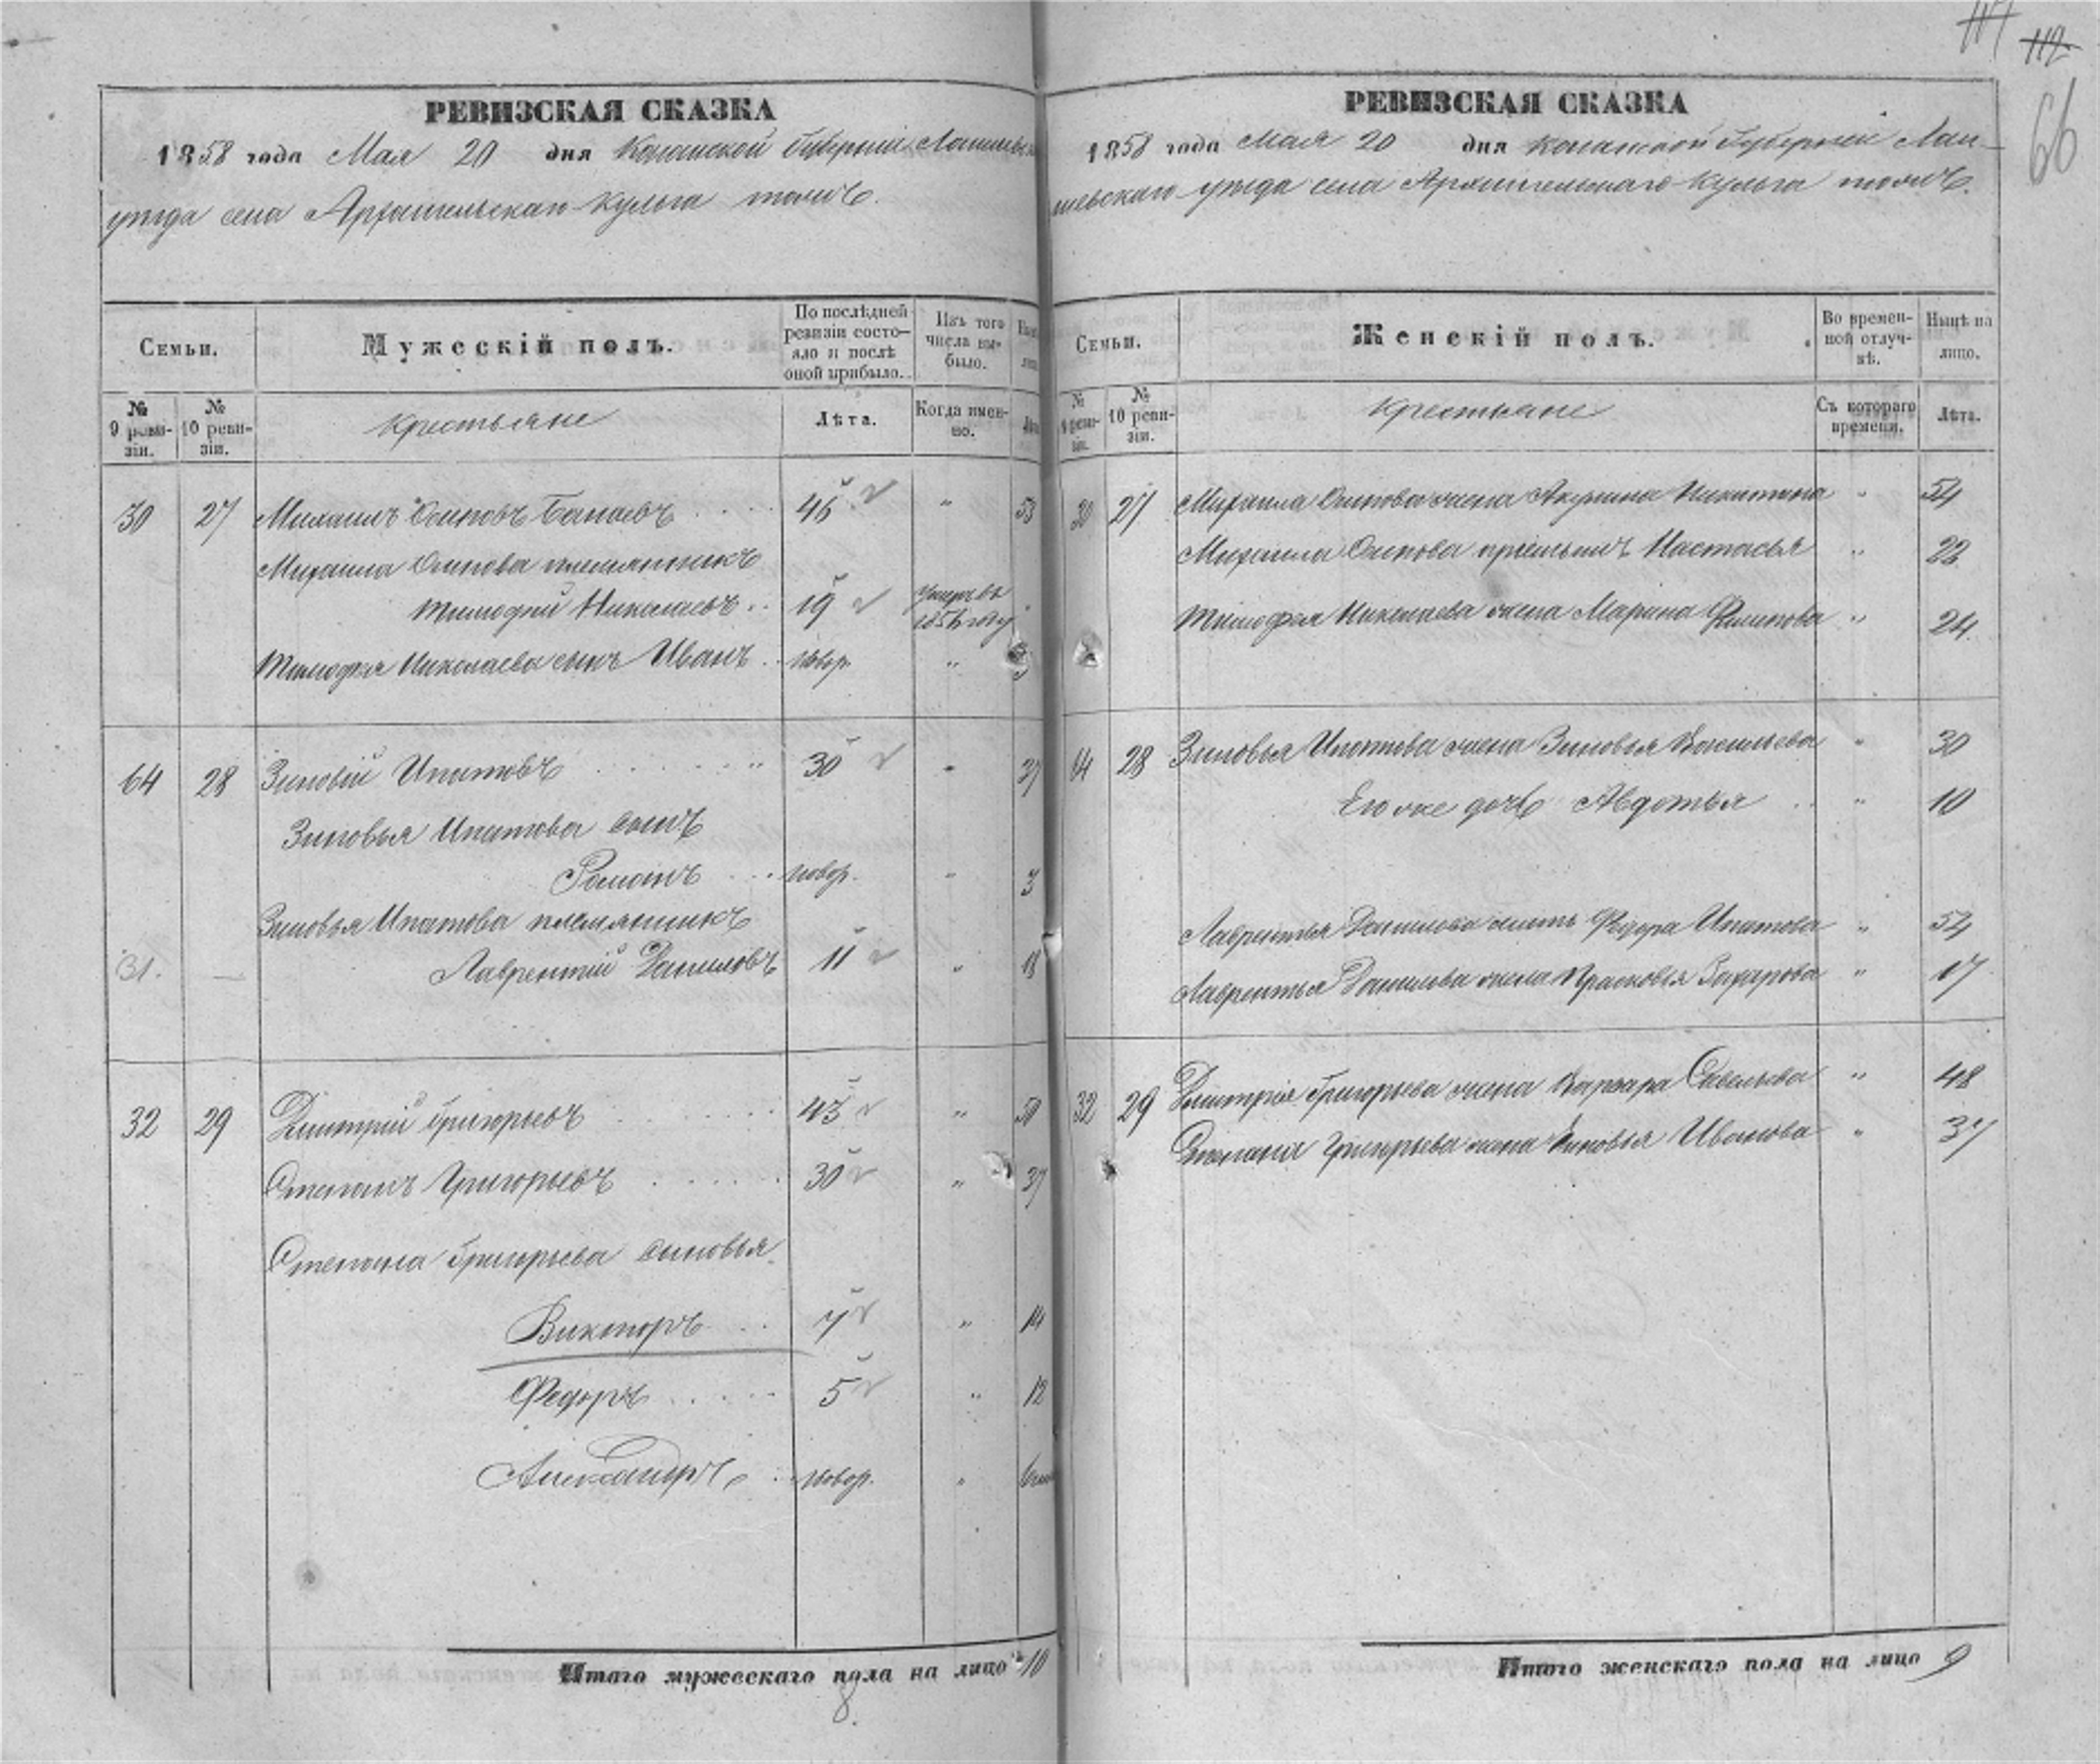 114
112
66
РЕВИЗСКАЯ СКАЗКА
1858 года Мая 20 дня Казанской Губерніи Лаишевска
уезда села Архангельскаго Кульга тожъ.
Семьи.
Мужескій полъ.
По послѣдней ревизіи состо-
яло и послѣ
оной прибыло.
Изъ того
числа вы-
было.
№
9 реви-
зіи.
№
10 реви-
зіи.
Крестьяне
Лѣта.
Когда имен-
но.
30 27 Михаилъ Осиповъ 46 " 53
Михаила Осипова племянникъ
Тимофей Николаевъ .. 19 Умеръ въ
185 году
Тимофея Николаева сынъ Иванъ .. новор. "
64 28 Зиновій Ипатовъ 30 " 37
Зиновья Ипатова сынъ
Романъ ... новор. " 3
Зиновья Ипатова племянникъ
31. — Лаврентій Даниловъ 11 " 18
32 29 Дмитрій Григорьевъ 43 " 50
Степанъ Григорьевъ 30 " 37
Степана Григорьева сыновья
Викторъ .. 7 " 14
Федоръ 5 " 12
Александръ . новор. "
Итого мужескаго пола на лицо 10
8.
РЕВИЗСКАЯ СКАЗКА
1858 года Мая 20 дня Казанской Губерніи Лаи-
шевскаго уезда села Архангельскаго Кульга тожъ.
Семьи.
Женскій полъ.
Во времен-
ной отлуч-
кѣ.
Нынѣ на
лицо.
№
9 реви-
зіи.
№
10 реви-
зіи.
Крестьяне
Съ котораго
времени.
Лѣта.
30 27 Михаила Осипова жена Акулина Никитина " 54
Михаила Осипова Настасья " 22
Тимофея Николаева жена Марина Филипова " 24.
64 28 Зиновья Ипатова жена Зиновья Васильева " 30
Его же дочь Авдотья .. " 10
Лаврентья Данилова мать Ипатова " 54
Лаврентья Данилова жена Прасковья Захарова " 17
32 29 Дмитрія Григорьева жена Варвара Савельева " 48
Степана Григорьева жена Зиновья Иванова " 37
Итого женскаго пола на лицо 9